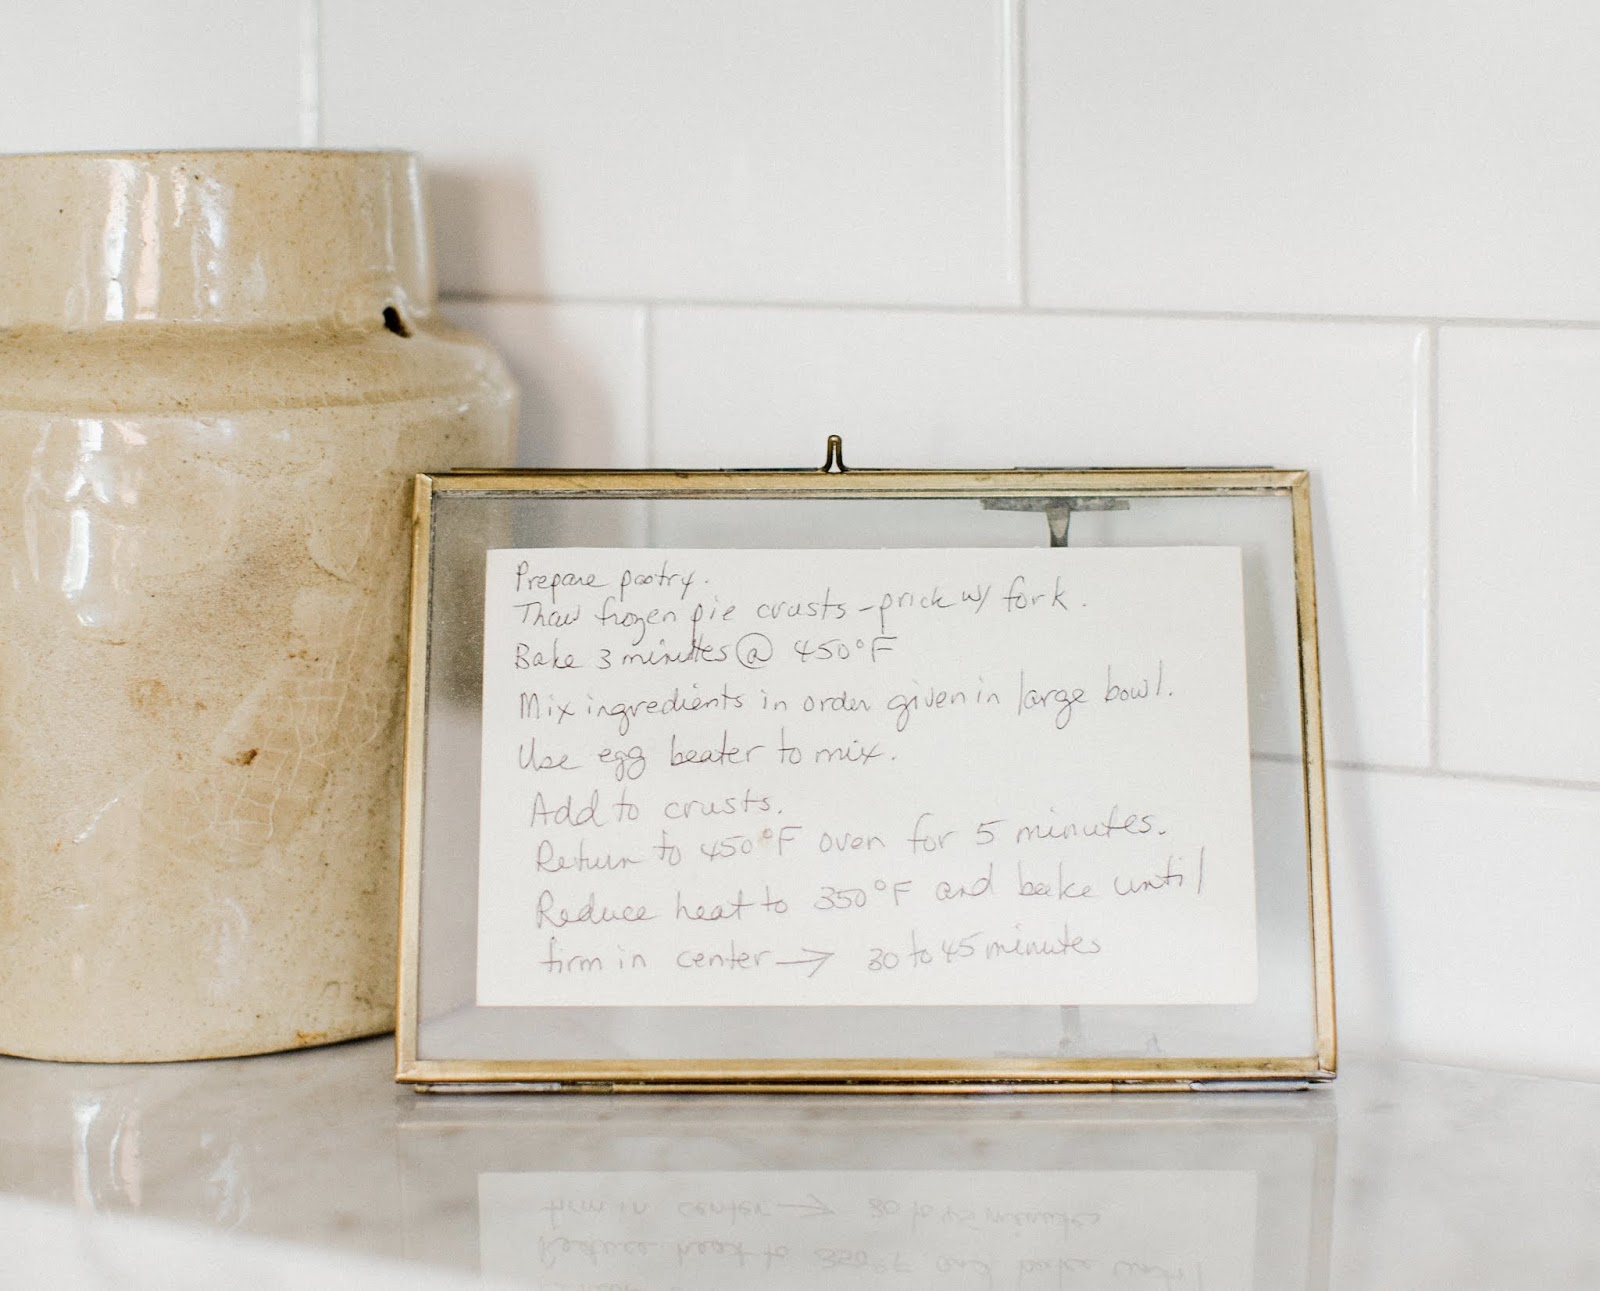 Prepare pastry.
Thaw frozen pie crusts - prick w/ fork.
Bake 3 minutes @ 450°F
Mix ingredients in order given in large bowl.
Use egg beater to mix.
Add to crusts.
Return to 450°F oven for 5 minutes.
Reduce heat to 350°F and bake until
firm in center → 30 to 45 minutes